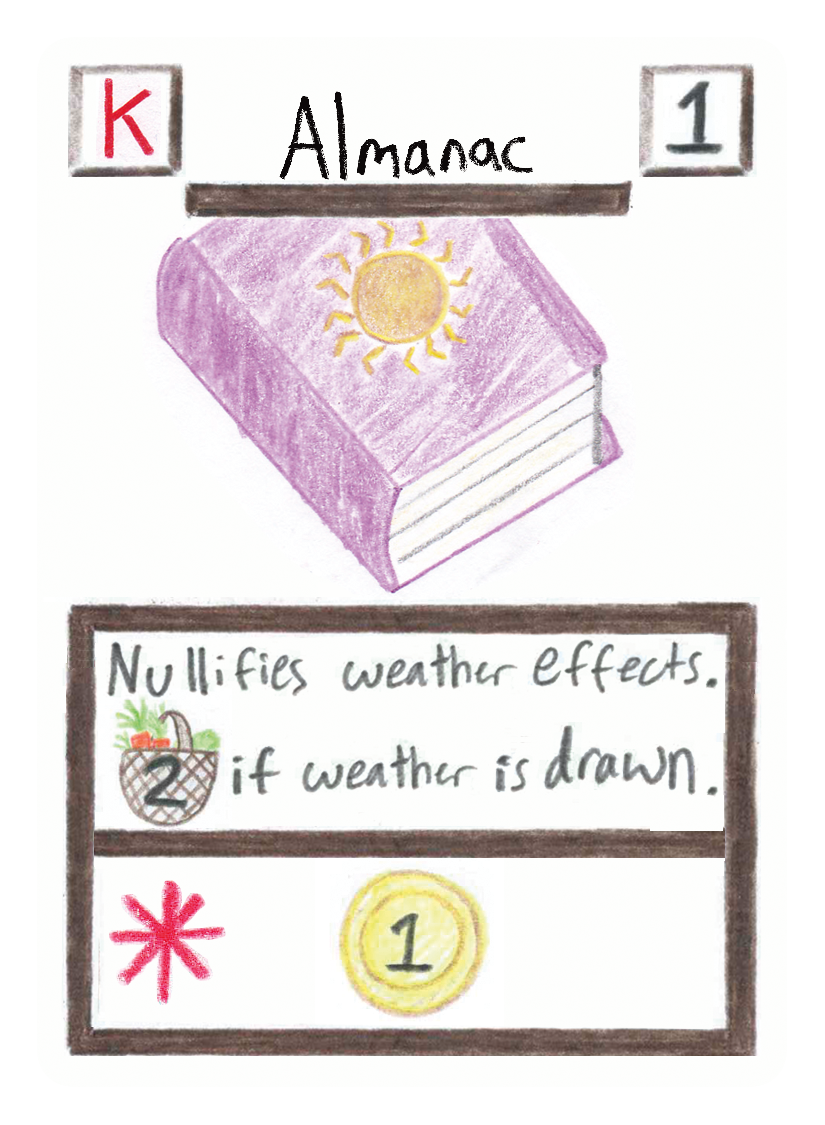 K
Almanac
1
Nullifies weather effects.
2 if weather is drawn.
1